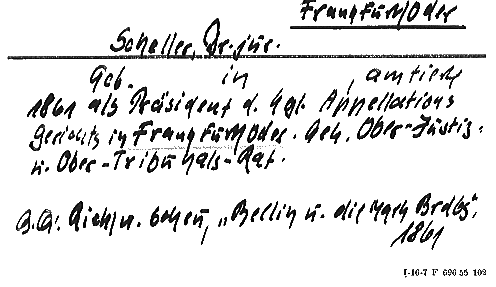 Frankfurt/Oder
Scheller, Dr. jur.
Geb. in , amtiert
1861 als Präsident d. Kgl. Appellations
gerichts in Frankfurt/Oder. Geh. Ober-Justiz-
u. Ober-Tribunals-Rat.
"Berlin u. die Mark Brdbg",
1861
I-16-7 F 690 55 102